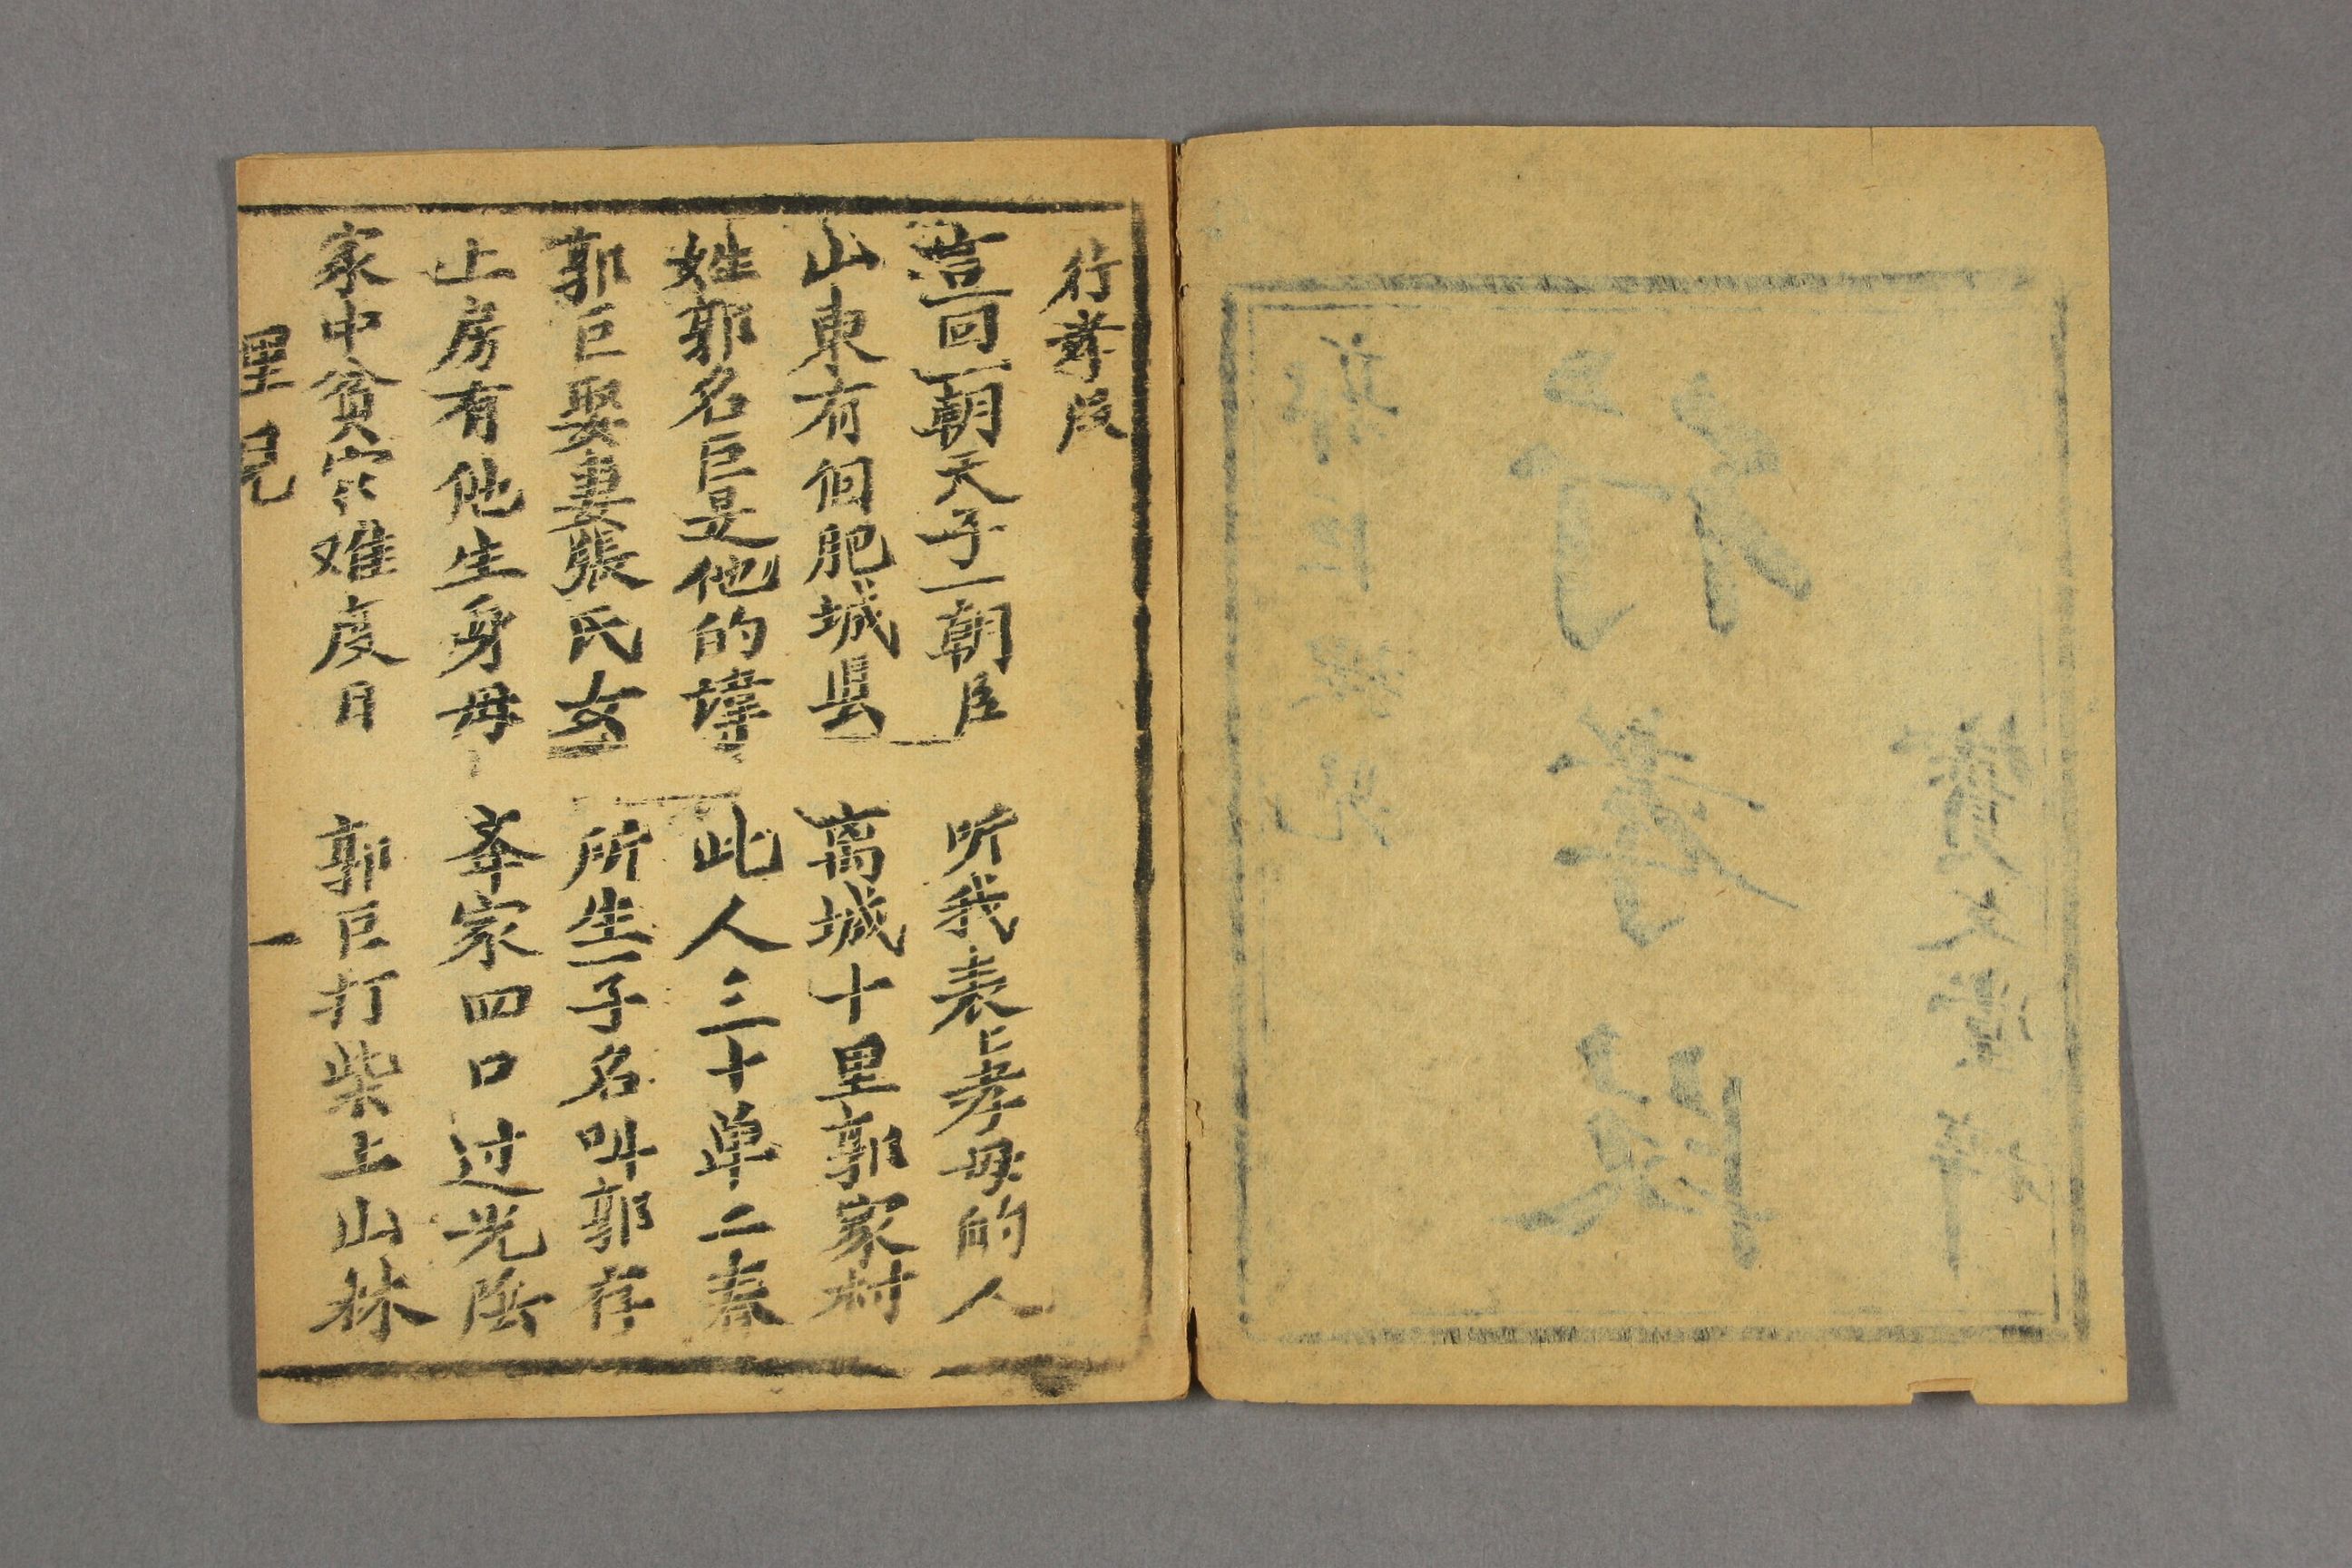 行孝段
言回一朝天子一朝臣 听我表上孝母的人
山東有佪肥城县 离城十里郭家村
姓郭名巨是他的諱 此人三十单二春
郭巨娶妻張氏女 所生一子名叫郭存
上房有他生身母 夲家四口过光陰
家中貧穷难度日 郭巨打柴上山林
里見 一